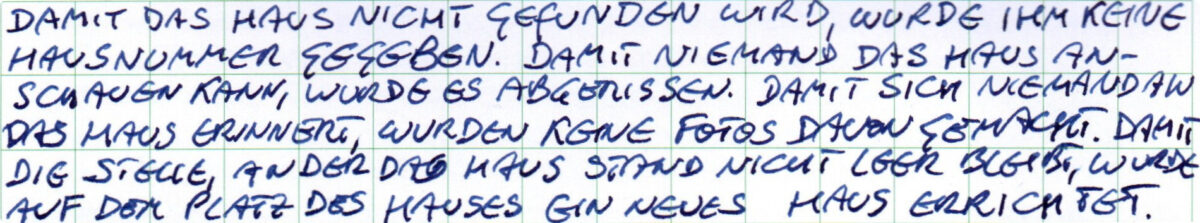 DAMIT DAS HAUS NICHT GEFUNDEN WIRD, WURDE IHM KEINE
HAUSNUMMER GEGEBEN. DAMIT NIEMAND DAS HAUS AN-
SCHAUEN KANN, WURDE ES ABGERISSEN. DAMIT SICH NIEMAND AN
DAS HAUS ERINNERT, WURDEN KEINE FOTOS DAVON GEMACHT. DAMIT
DIE STELLE, AN DER DAS HAUS STAND NICHT LEER BLEIBT, WURDE
AUF DEM PLATZ DES HAUSES EIN NEUES HAUS ERRICHTET.